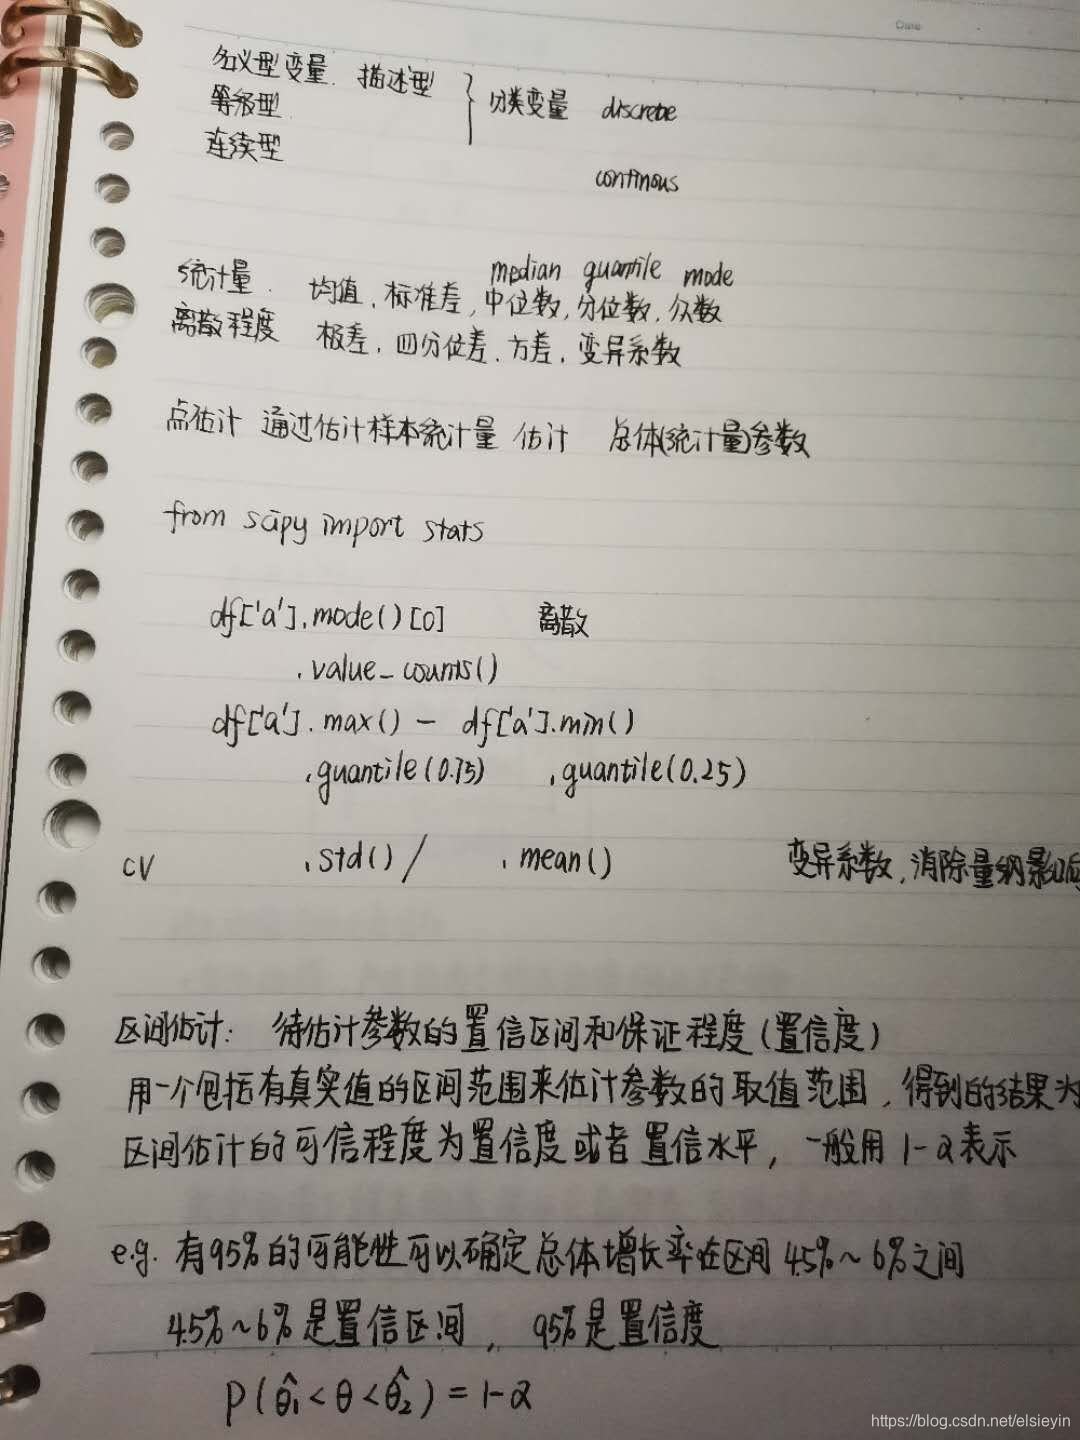 Date
名义型变量. 描述型
等级型.
分类变量 discrete
连续型
continous
median quantile mode
统计量. 均值, 标准差, 中位数, 分位数, 众数
离散程度 极差, 四分位差, 方差, 变异系数
点估计 通过估计样本统计量 估计 总体(统计量)参数
from scipy import stats
df['a'].mode()[0] 离散
.value_counts()
df['a'].max() - df['a'].min()
.quantile(0.75) .quantile(0.25)
CV .std() / .mean() 变异系数, 消除量纲影响
区间估计: 待估计参数的置信区间和保证程度(置信度)
用一个包括有真实值的区间范围来估计参数的取值范围, 得到的结果为
区间估计的可信程度为置信度或者置信水平, 一般用 1-α表示
e.g. 有95%的可能性可以确定总体增长率在区间 4.5%~6%之间
4.5%~6%是置信区间, 95%是置信度
P(θ̂1<θ<θ̂2)=1-α
https://blog.csdn.net/elsieyin